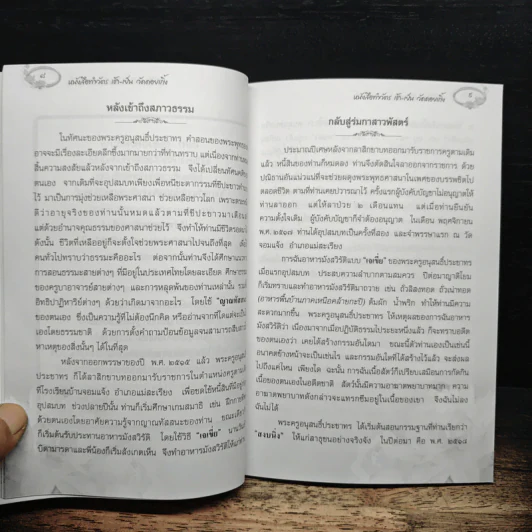 ๘
หนังสือทำวัตร เช้า-เย็น
หลังเข้าถึงสภาวธรรม
ในทัศนะของพระครูอนุสนธิ์ประชาทร คำสอนของพระพุทธ
อาจจะมีเรื่องละเอียดลึกซึ้งมากมายกว่าที่ท่านทราบ แต่เนื่องจาก
สิ้นความสงสัยแล้วหลังจากเข้าถึงสภาวธรรม จึงได้เปลี่ยนทัศนคติ
ตนเอง จากเดิมที่จะอุปสมบทเพียงเพื่อ
ไว้ มาเป็นการมุ่งช่วยเหลือพระศาสนา ช่วยเหลือชาวโลก เพราะ
ดีว่าอายุจริงของท่านนั้นหมดแล้วตามที่ชีปะขาวมาเตือน
แต่ด้วยอำนาจคุณธรรมของศาสนาช่วยไว้ จึงทำให้ท่านมีชีวิตรอด
ดังนั้น ชีวิตที่เหลืออยู่ก็จะตั้งใจช่วยพระศาสนาไปจนถึงที่สุด
คนทั่วไปทราบว่าธรรมะคืออะไร ต่อจากนั้นท่านจึงได้ศึกษา
การสอนธรรมะสายต่างๆ ที่มีอยู่ในประเทศไทยโดยละเอียด
ของครูบาอาจารย์สายต่างๆ และการหลุดพ้นของท่านเหล่านั้น
อิทธิปาฏิหาริย์ต่างๆ ด้วยว่าเกิดมาจากอะไร โดยใช้ "ญาณทัสสนะ"
ของตนเอง ซึ่งเป็นความรู้ที่ไม่ต้องนึกคิด หรืออ่านจากที่ใดแต่จะเป็น
เองโดยธรรมชาติ ด้วยการตั้งคำถามป้อนข้อมูลจนสามารถสืบ
หาเหตุของสิ่งนั้นๆ ได้ในที่สุด
หลังจากออกพรรษาของปี พ.ศ. ๒๕๑๕ แล้ว พระครูอนุสนธิ์
ประชาทร ก็ได้ลาสิกขาบทออกมารับราชการในตำแหน่งครูตาม
ที่โรงเรียนบ้านจอมแจ้ง อำเภอแม่สะเรียง เพื่อชดใช้หนี้สินที่มี
อุปสมบท ช่วงปลายปีนั้น ท่านก็เริ่มศึกษาเกมสมาธิ เช่น ฝึก
ด้วยตนเองโดยอาศัยความรู้จากญาณทัสสนะของท่าน ขณะ
ก็เริ่มต้นรับประทานอาหารมังสวิรัติ โดยใช้วิธี "เจเขี่ย"
บิดามารดาและพี่น้องก็เริ่มสังเกตเห็น จึงทำอาหารมังสวิรัติให้
หนังสือทำวัตร เช้า-เย็น
๙
กลับสู่ร่มกาสาวพัสตร์
ประมาณปีเศษหลังจากลาสิกขาบทออกมารับราชการครูตามเดิม
แล้ว หนี้สินของท่านก็หมดลง ท่านจึงตัดสินใจลาออกจากราชการ ด้วย
ปณิธานอันแน่วแน่ที่จะช่วยผดุงพระพุทธศาสนาในเพศของบรรพชิตไป
ตลอดชีวิต ตามที่เคยปวารณาไว้ ครั้งแรกผู้บังคับบัญชาไม่อนุญาตให้
ท่านลาออก แต่ให้ลาป่วย ๒ เดือนแทน แต่เมื่อท่านยืนยัน
ความตั้งใจเดิม ผู้บังคับบัญชาก็จำต้องอนุญาต ในเดือน พฤศจิกายน
พ.ศ. ๒๕๑๗ ท่านได้อุปสมบทเป็นครั้งที่สอง และจำพรรษาแรก ณ วัด
จอมแจ้ง อำเภอแม่สะเรียง
การฉันอาหารมังสวิรัติแบบ "เจเขี่ย" ของพระครูอนุสนธิ์ประชาทร
เมื่อแรกอุปสมบท ประสบความลำบากตามสมควร ปีต่อมาญาติโยม
ก็เริ่มทราบและทำอาหารมังสวิรัติมาถวาย เช่น ถั่วลิสงทอด ถั่วเน่าทอด
(อาหารพื้นบ้านภาคเหนือคล้ายกะปิ) ต้มผัก น้ำพริก ทำให้ท่านมีความ
สะดวกมากขึ้น พระครูอนุสนธิ์ประชาทร ให้เหตุผลของการฉันอาหาร
มังสวิรัติว่า เนื่องมาจากเมื่อปฏิบัติธรรมไประยะหนึ่งแล้ว ก็จะทราบอดีต
ของตนเองว่า เคยได้สร้างกรรมอันใดมา ขณะนี้ตัวท่านเองเป็นเช่นนี้
อนาคตข้างหน้าจะเป็นเช่นไร และกรรมอันใดที่ได้สร้างไว้แล้ว จะส่งผล
ไปถึงแค่ไหน เพียงใด ฉะนั้น การฉันเนื้อสัตว์ก็เปรียบเสมือนการกัดกิน
เนื้อของตนเองในอดีตชาติ สัตว์นั้นมีความอาฆาตพยาบาทมา ความ
อาฆาตพยาบาทดังกล่าวจะแทรกซึมอยู่ในเนื้อของเขา จึงฉันไม่ลง
ฉันไม่ได้
พระครูอนุสนธิ์ประชาทร ได้เริ่มต้นสอนกรรมฐานที่ท่านเรียกว่า
"สงบนิ่ง" ให้แก่สาธุชนอย่างจริงจัง ในปีต่อมา คือ พ.ศ. ๒๕๑๘